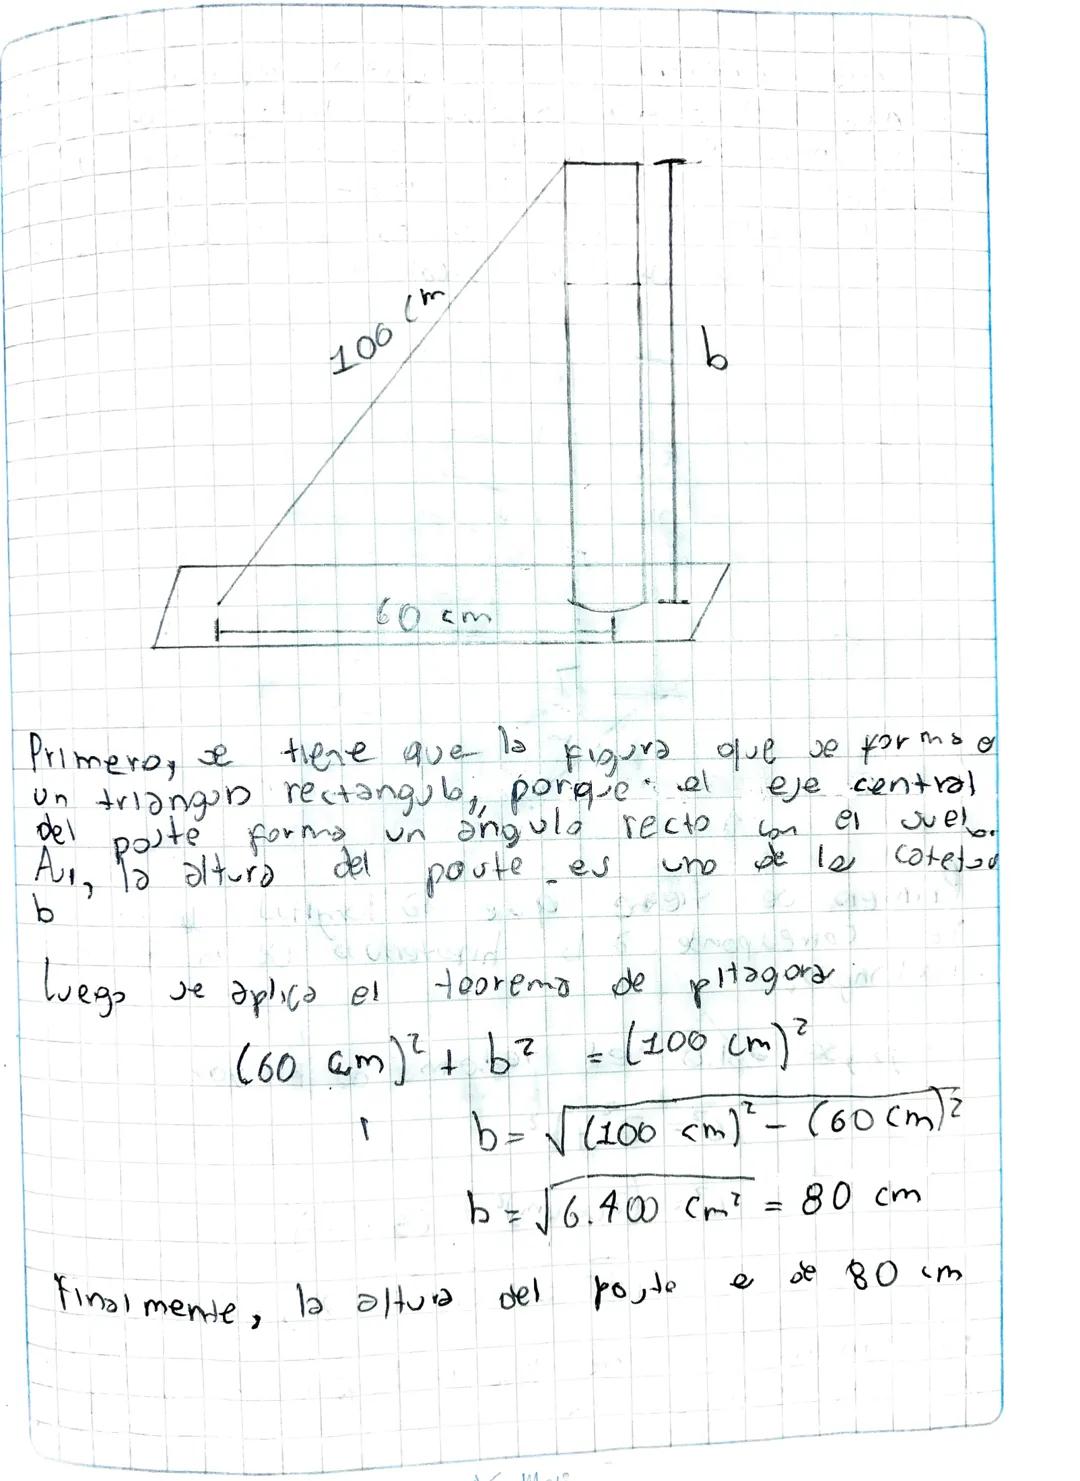 100 cm
b
60 cm
Primero, se tiene que la figura que se forma e
un triangulo rectangulo, porque el eje central
del poste forma un ángulo recto con el suelo.
Así, la altura del poste es uno de los catetos
b
luego se aplica el teorema de pitagora
(60 cm)² + b² = (100 cm)²
b = √(100 cm)² - (60 cm)²
b = √6.400 cm² = 80 cm
Finalmente, la altura del poste e de 80 cm